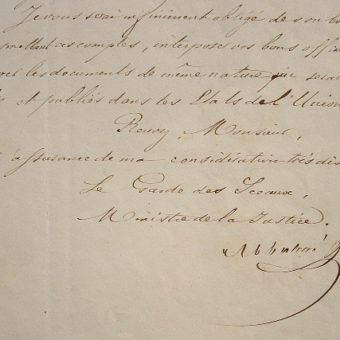 Je vous serai infiniment obligé de son
comptes, interposer vos bons
les documents de même nature que
et publiés dans les Etats de l'Union
Recevez, Monsieur,
assurance de ma considération très
Le Garde des Sceaux,
Ministre de la Justice.